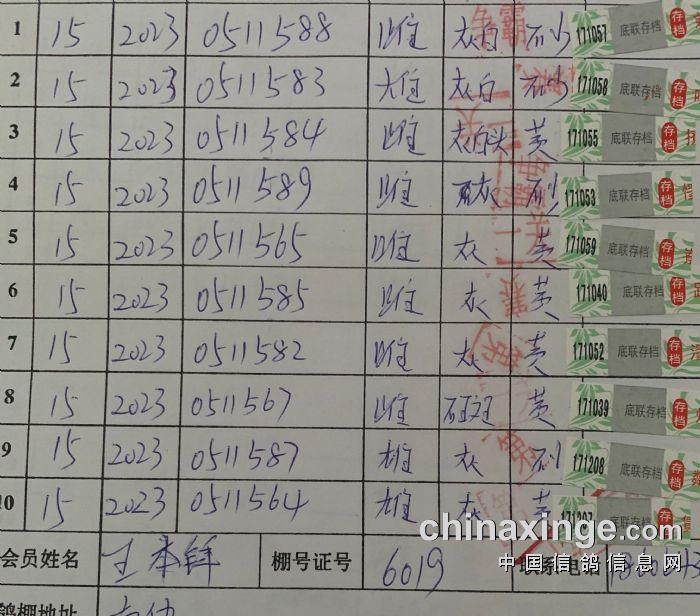 1 15 2023 0511588 雌 灰白 砂 171057 底联存档 存档
2 15 2023 0511583 雄 灰白 砂 171058 底联存档 存档
3 15 2023 0511584 雌 灰白头 黄 171055 底联存档 存档
4 15 2023 0511589 雌 灰 砂 171053 底联存档 存档
5 15 2023 0511565 雌 灰 黄 171059 底联存档 存档
6 15 2023 0511585 雌 灰 黄 171040 底联存档 存档
7 15 2023 0511582 雌 灰 黄 171052 底联存档 存档
8 15 2023 0511567 雌 斑 黄 171039 底联存档 存档
9 15 2023 0511587 雄 灰 砂 171208 底联存档 存档
10 15 2023 0511564 雄 灰 黄 存档
会员姓名 王本 棚号证号 6019 联系电话
鸽棚地址
chinaxinge.com
中国信鸽信息网